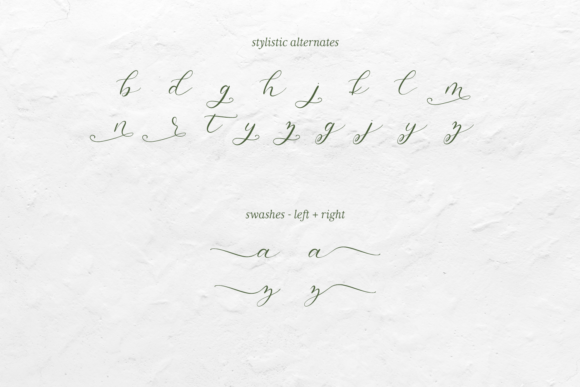 stylistic alternates
b d g h j k l m
n r t y z g j y z
swashes - left + right
a a
z z